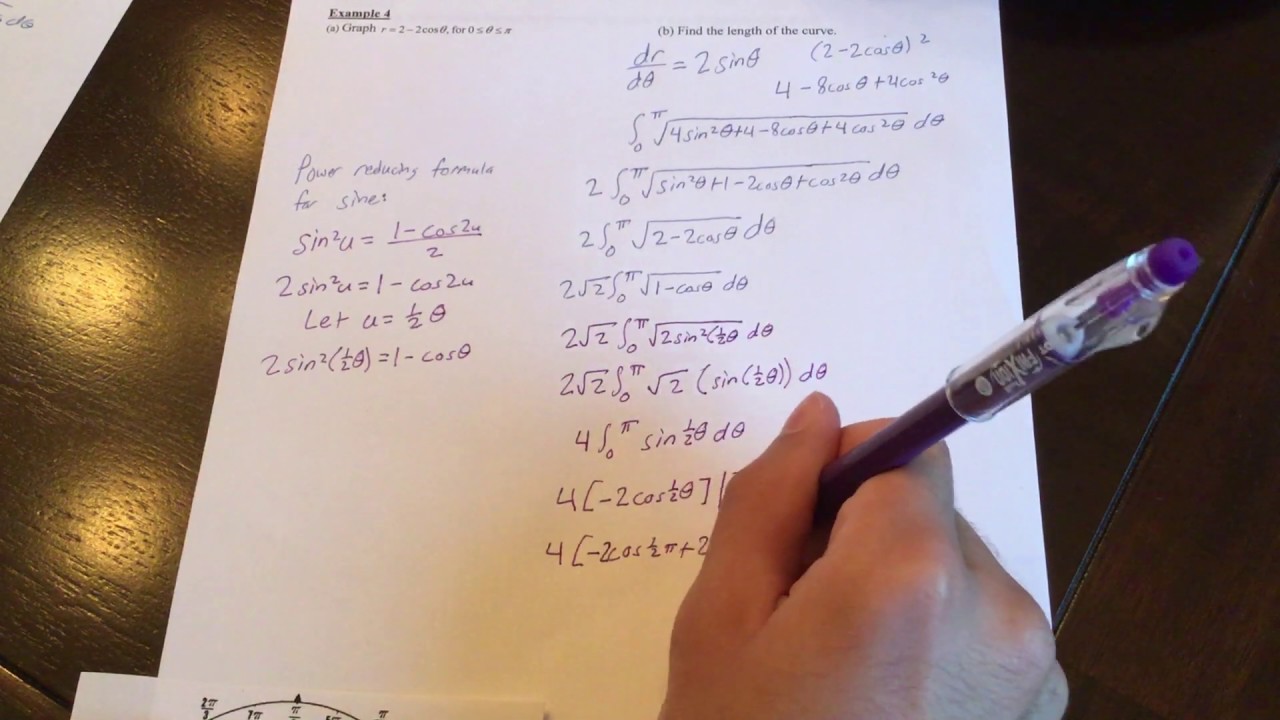 dθ
Example 4
(a) Graph r = 2 − 2cosθ, for 0 ≤ θ ≤ π
(b) Find the length of the curve.
dr/dθ = 2 sinθ
(2-2cosθ)²
4 - 8cosθ + 4cos²θ
∫₀^π √(4sin²θ+4-8cosθ+4cos²θ) dθ
2 ∫₀^π √(sin²θ+1-2cosθ+cos²θ) dθ
2 ∫₀^π √(2-2cosθ) dθ
2√2 ∫₀^π √(1-cosθ) dθ
2√2 ∫₀^π √(2sin²(½θ) dθ
2√2 ∫₀^π √2 (sin(½θ)) dθ
4 ∫₀^π sin ½θ dθ
4[-2cos½θ] |
4[-2cos½π+2
Power reducing formula
for sine:
sin²u = (1-cos2u)/2
2sin²u = 1 - cos2u
Let u = ½ θ
2sin²(½θ) = 1 - cosθ
FriXion
2π/3
π/2